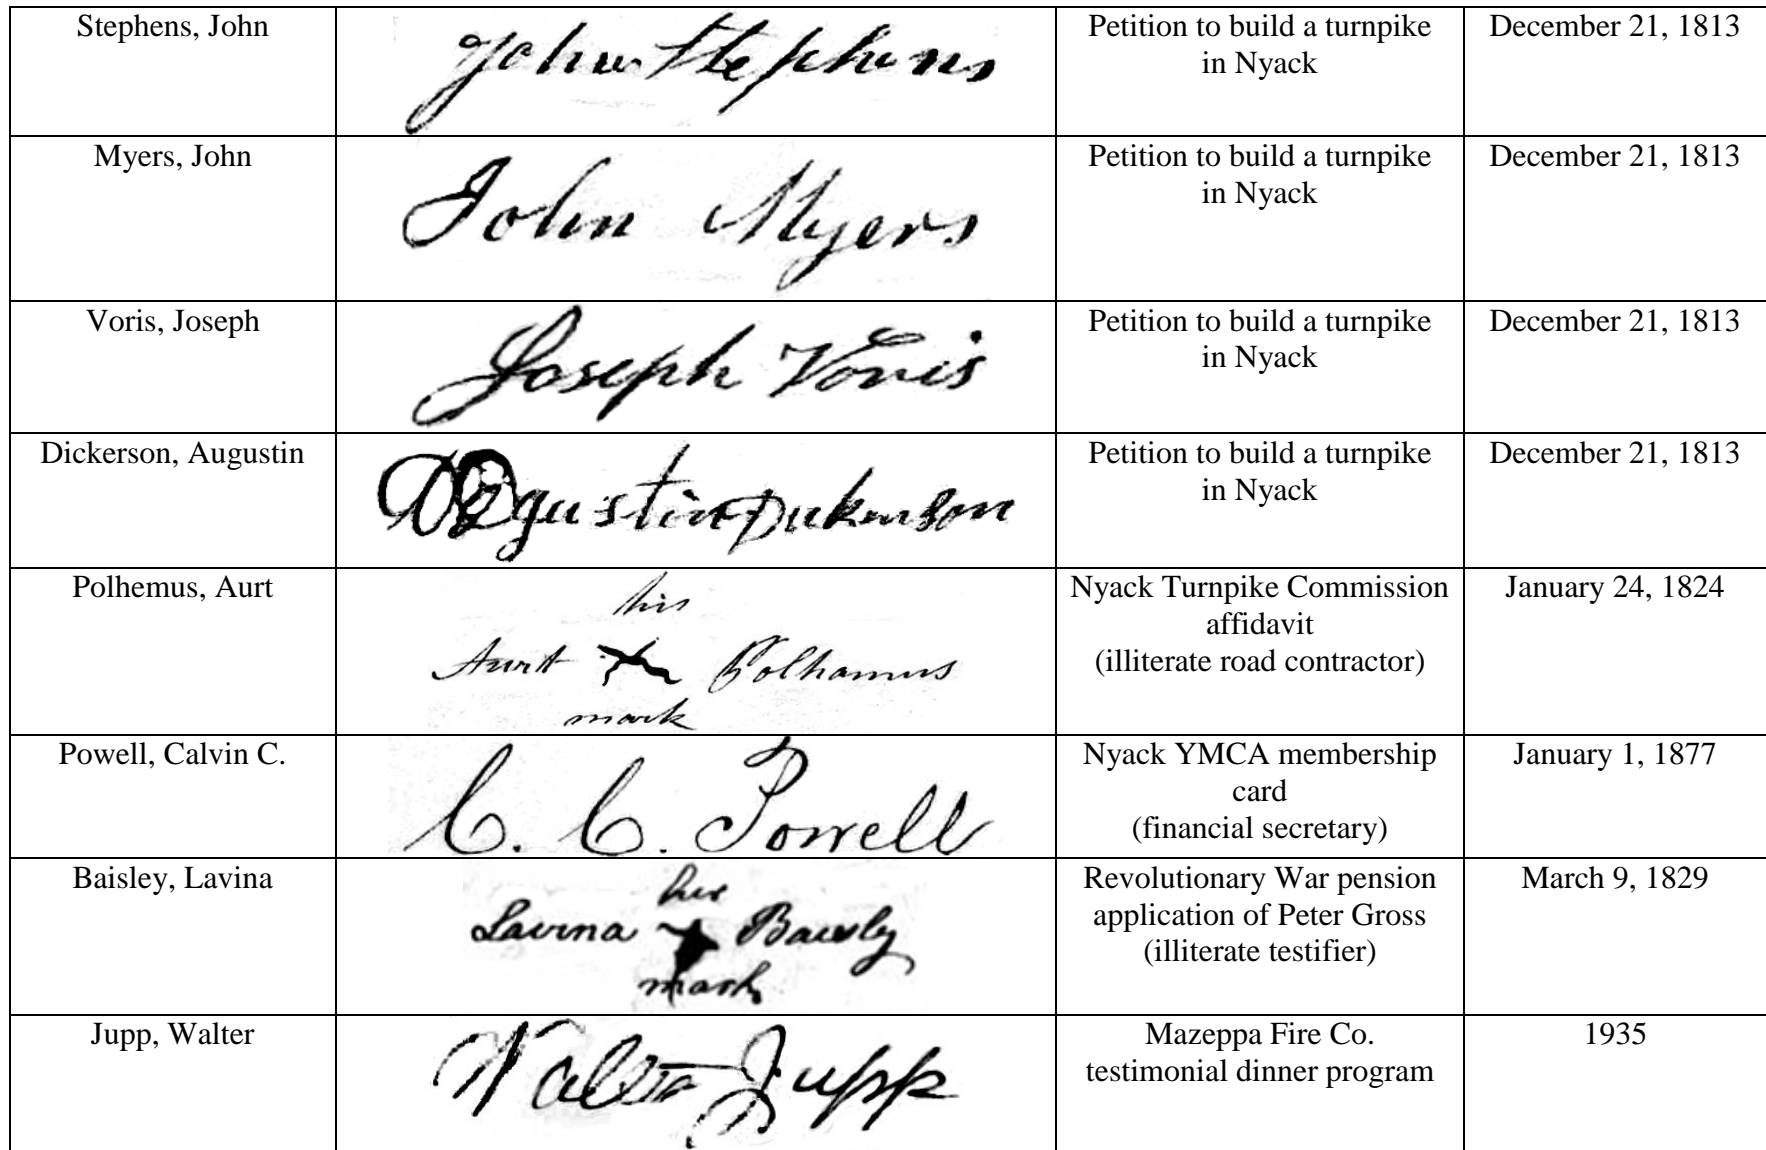 Stephens, John
John Stephens
Petition to build a turnpike
in Nyack
December 21, 1813
Myers, John
John Myers
Petition to build a turnpike
in Nyack
December 21, 1813
Voris, Joseph
Joseph Voris
Petition to build a turnpike
in Nyack
December 21, 1813
Dickerson, Augustin
Petition to build a turnpike
in Nyack
December 21, 1813
Polhemus, Aurt
his
Aurt Polhamus
mark
Nyack Turnpike Commission
affidavit
(illiterate road contractor)
January 24, 1824
Powell, Calvin C.
C. C. Powell
Nyack YMCA membership
card
(financial secretary)
January 1, 1877
Baisley, Lavina
her
Lavina
mark
Revolutionary War pension
application of Peter Gross
(illiterate testifier)
March 9, 1829
Jupp, Walter
Walter Jupp
Mazeppa Fire Co.
testimonial dinner program
1935